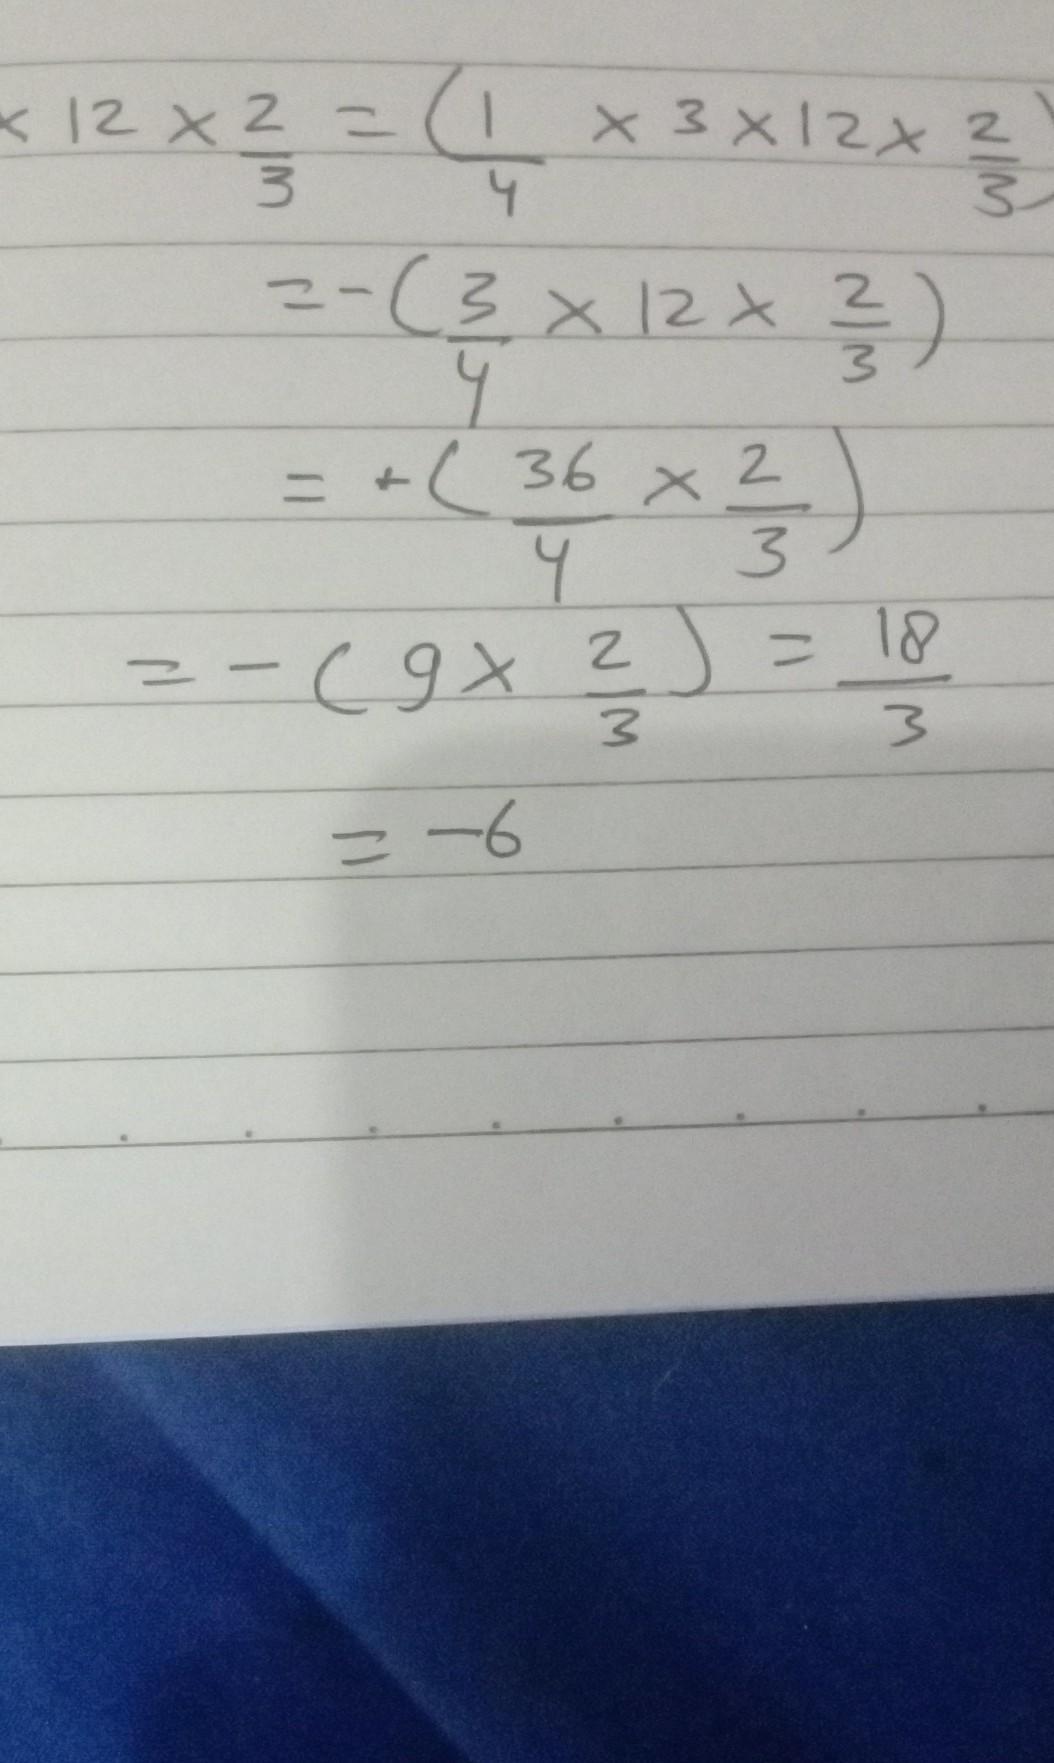 × 12 × 2/3 = (1/4 × 3 × 12 × 2/3)
= - (3/4 × 12 × 2/3)
= + (36/4 × 2/3)
= - (9 × 2/3) = 18/3
= -6